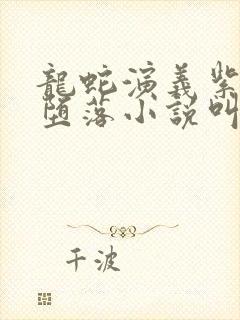 龍蛇演義紫
堕落小說叫
千波